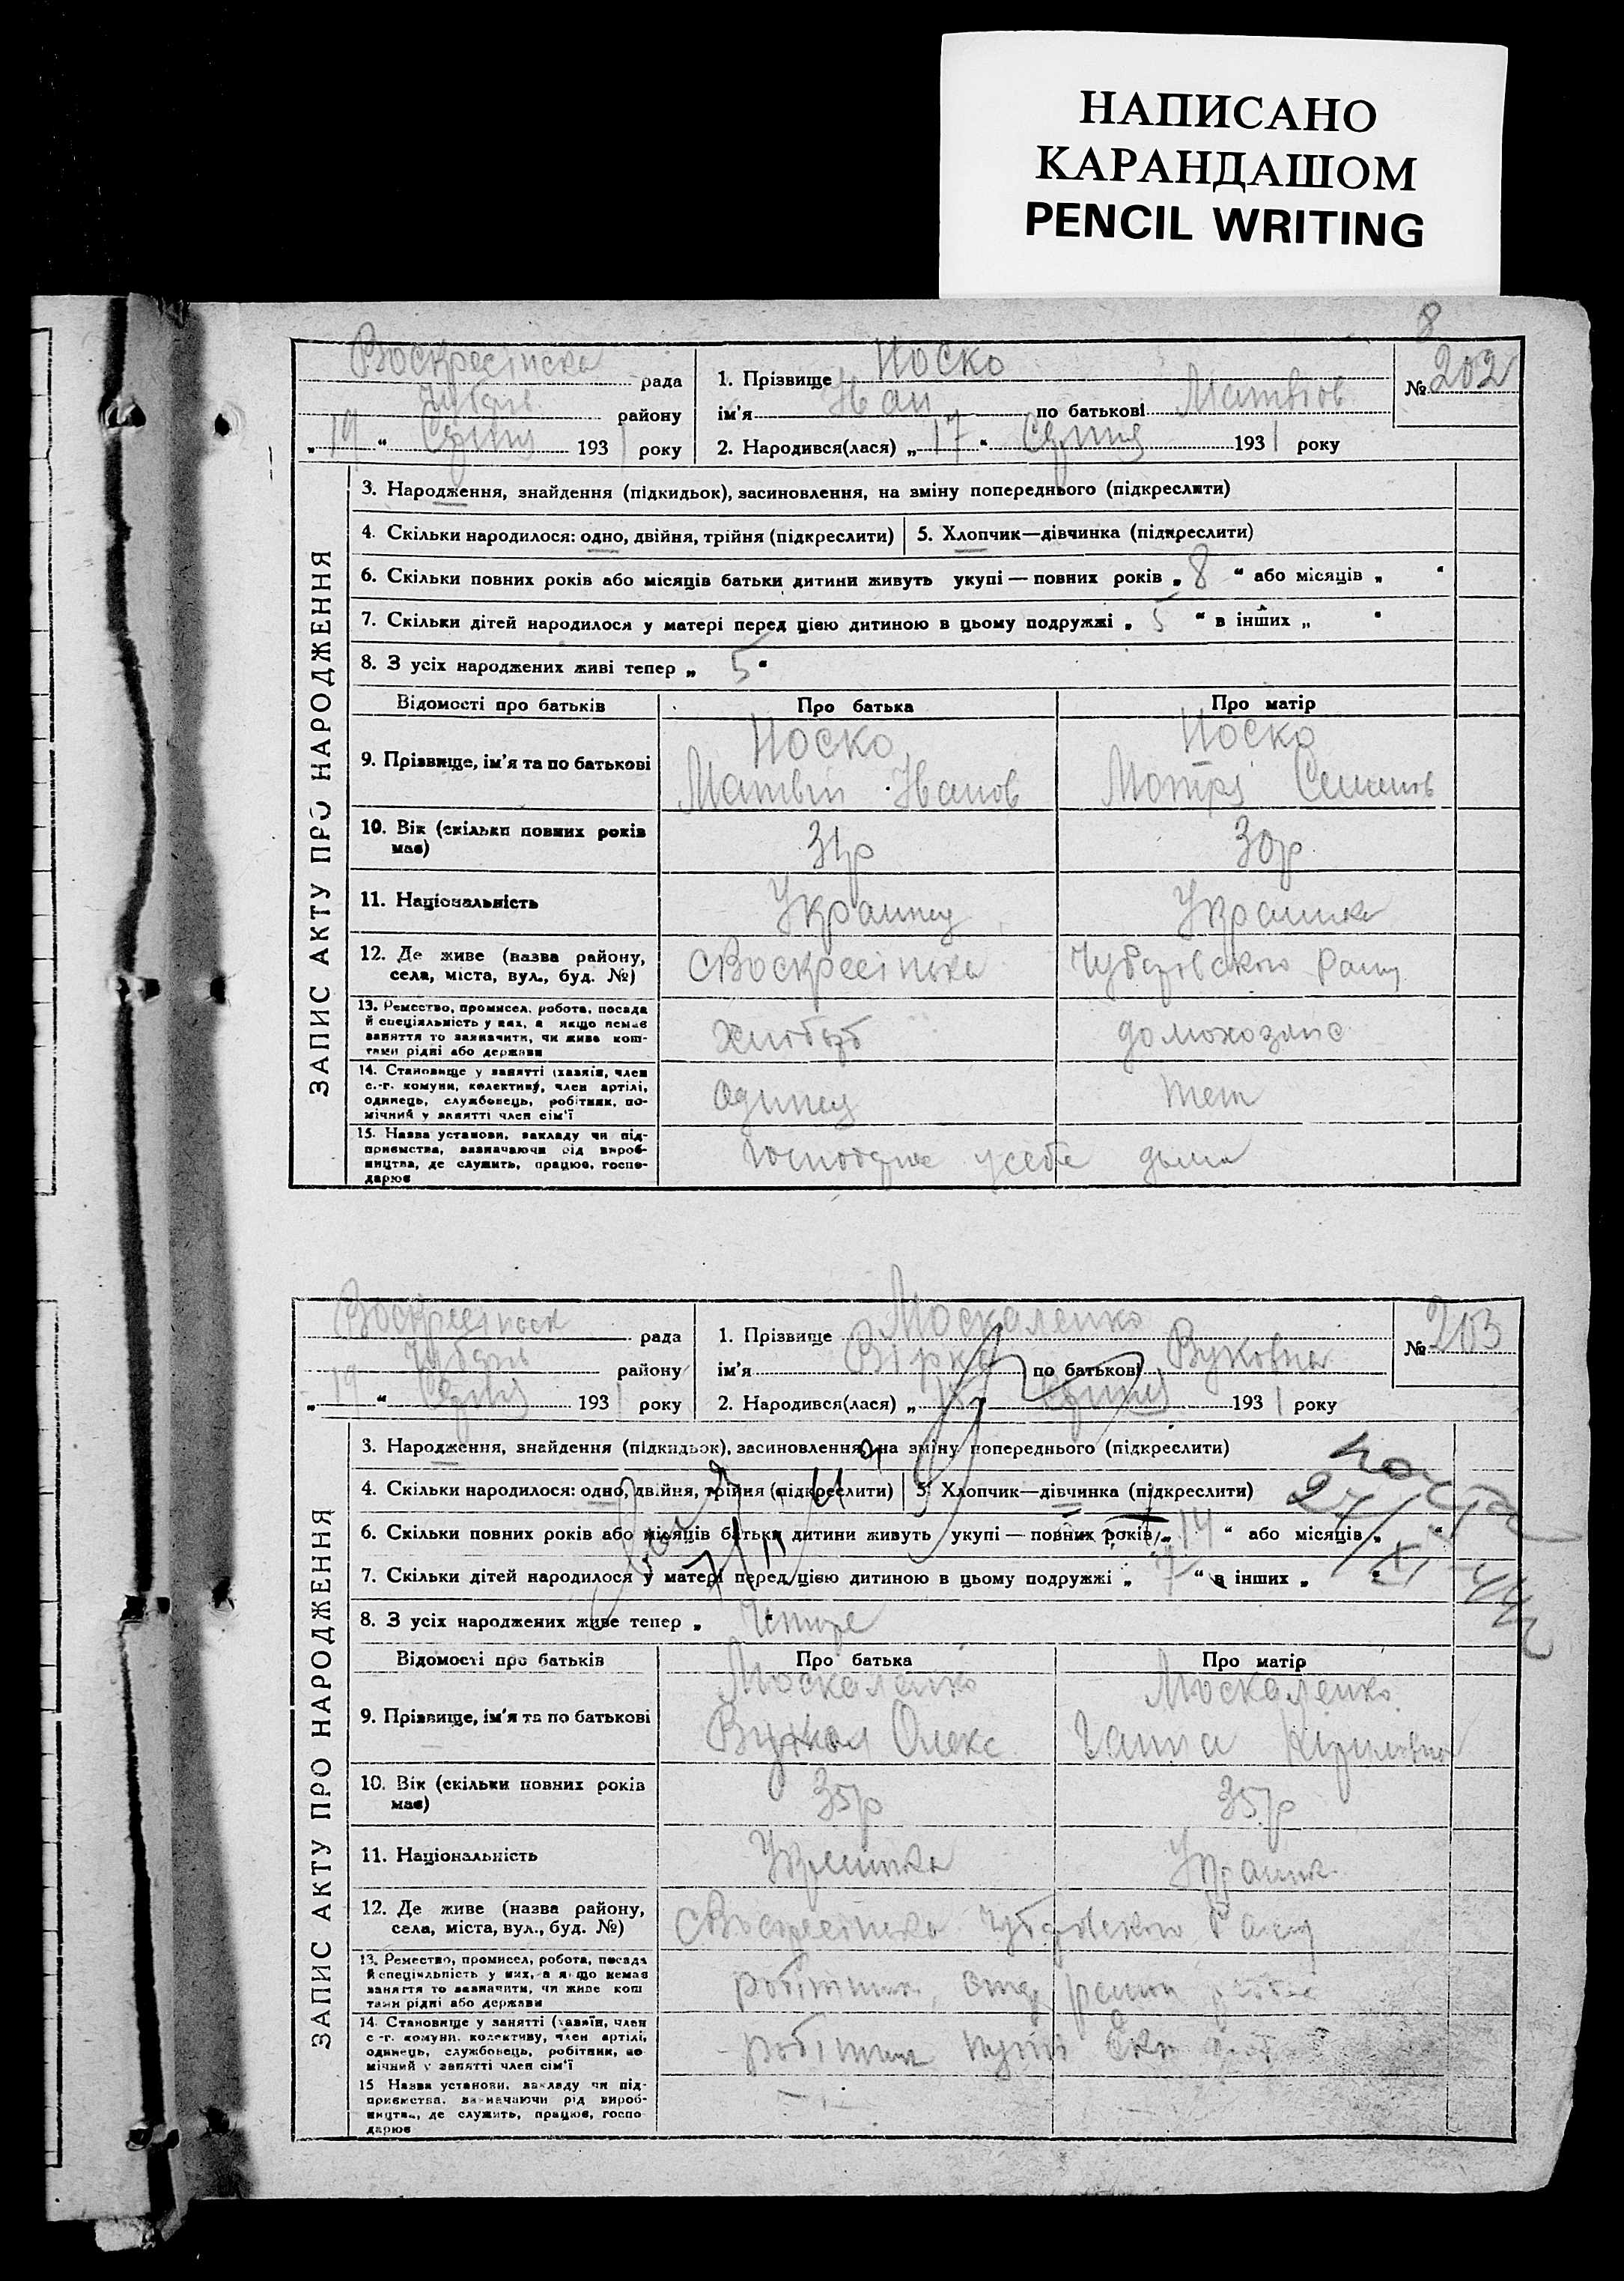 НАПИСАНО
КАРАНДАШОМ
PENCIL WRITING
8
Воскресінска рада
Чубарів. району
„19“ Серпня 1931 року
1. Прізвище Носко
ім'я Іван по батькові Матвіов
2. Народився(лася) „17“ Серпня 1931 року
№ 202
ЗАПИС АКТУ ПРО НАРОДЖЕННЯ
3. Народження, знайдення (підкидьок), засиновлення, на зміну попереднього (підкреслити)
4. Скільки народилося: одно, двійня, трійня (підкреслити) 5. Хлопчик—дівчинка (підкреслити)
6. Скільки повних років або місяців батьки дитини живуть укупі — повних років „ 8 “ або місяців „ “
7. Скільки дітей народилося у матері перед цією дитиною в цьому подружжі „ 5 “ в інших „ “
8. З усіх народжених живі тепер „ 5 “
Відомості про батьків Про батька Про матір
9. Прізвище, ім'я та по батькові Носко Матвій Іванов Носко Мотрі Семенов
10. Вік (скільки повних років має) 31р 30р
11. Національність Украинец Украинка
12. Де живе (назва району, села, міста, вул., буд. №) с Воскресінька Чубарівського Раину
13. Ремество, промисел, робота, посада й спеціяльність у них, а якщо немає заняття то зазначити, чи живе коштами рідні або держави Хлібороб домохозяіс
14. Становище у занятті (хазяїн, член с.-г. комуни, колективу, член артілі, одинець, службовець, робітник, помічний у занятті член сім'ї одинец теж
15. Назва установи, закладу чи підприємства, зазначаючи рід виробництва, де служить, працює, господарює господарює у себе дома
Воскресінск рада
Чубарів району
„19“ Серпня 1931 року
1. Прізвище Москаленко
ім'я Вірка по батькові Вуковна
2. Народився(лася) „ “ Серпня 1931 року
№ 203
ЗАПИС АКТУ ПРО НАРОДЖЕННЯ
3. Народження, знайдення (підкидьок), засиновлення, на зміну попереднього (підкреслити)
4. Скільки народилося: одно, двійня, трійня (підкреслити) 5. Хлопчик—дівчинка (підкреслити)
6. Скільки повних років або місяців батьки дитини живуть укупі — повних років „ 14 “ або місяців „ “
7. Скільки дітей народилося у матері перед цією дитиною в цьому подружжі „ 7 “ в інших „ “
27/XI
8. З усіх народжених живе тепер „ Чотире “
Відомості про батьків Про батька Про матір
9. Прізвище, ім'я та по батькові Москаленко Вукол Олекс Москаленко Ганна Кіриловна
10. Вік (скільки повних років має) 35р 35р
11. Національність
12. Де живе (назва району, села, міста, вул., буд. №) с Воскресінька Чубарівського Раину
13. Ремество, промисел, робота, посада й спеціяльність у них, а якщо немає заняття то зазначити, чи живе коштами рідні або держави робітник
14. Становище у занятті (хазяїн, член с.-г. комуни, колективу, член артілі, одинець, службовець, робітник, помічний у занятті член сім'ї робітник
15 Назва установи, закладу чи підприємства, зазначаючи рід виробництва, де служить, працює, господарює